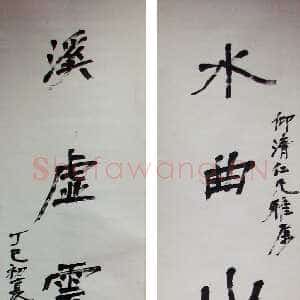 水曲山
仰濟仁兄雅属
溪虛雲
丁巳初夏